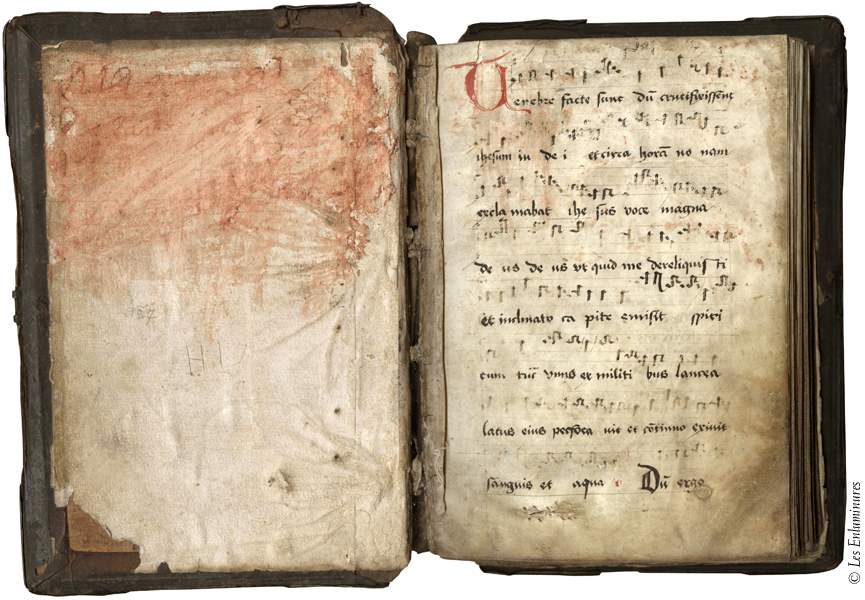 Uenebre facte sunt dū crucifixissent
ihesum iu de i et circa horā no nam
excla mabat ihe sus voce magna
de us de us vt quid me dereliquis ti
et inclinato ca pite emisit spiri
tum tūc vnus ex militi bus lancea
latus eius perfora uit et cōtinuo exiuit
sanguis et aqua Dū ergo
HIV
© Les Enluminures